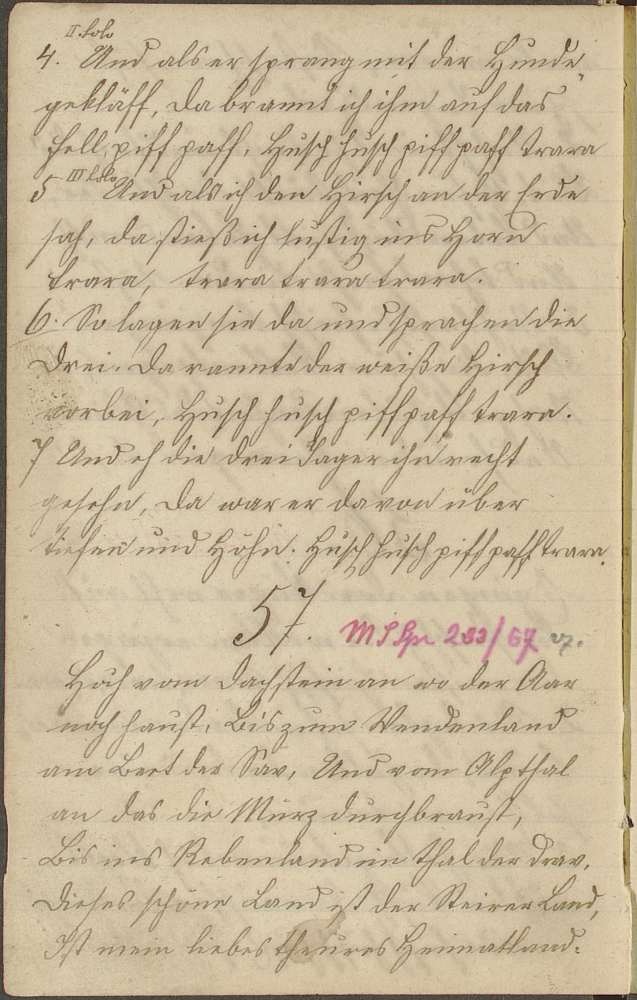 II. Solo
4. Und als er sprang mit der Hunde
gekläff, da brannt ich ihm auf das
Fell, piff paff, Husch husch piff paff trara
5 III Solo Und als ich den Hirsch an der Erde
sah, da stieß ich lustig ins Horn
trara, trara trara trara.
6. So lagen sie da und sprachen die
Drei. Da rannte der weiße Hirsch
vorbei, Husch husch piff paff trara.
7 Und eh die drei Jager ihn recht
gesehn, da war er davon über
tiefen und Höhn. Husch husch piff paff trara.
57.
233/67 27.
Hoch vom Dachstein an wo der Aar
noch haust, Bis zum Wendenland
am Bett der Sav, Und vom Alpthal
an das die Mürz durchbraust,
Bis ins Rebenland im thal der Drav,
Dieses schöne Land ist der Steirer Land,
Ist mein liebes theures Heimatland.